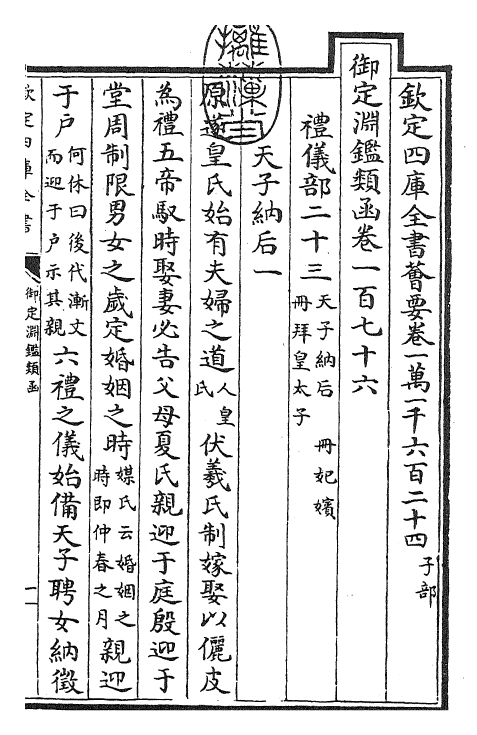 欽定四庫全書薈要卷一萬一千六百二十四子部
御定淵鑑類函卷一百七十六
禮儀部二十三天子納后 冊妃嬪冊拜皇太子
天子納后一
原遂皇氏始有夫婦之道人皇氏伏羲氏制嫁娶以儷皮
為禮五帝馭時娶妻必告父母夏氏親迎于庭殷迎于
堂周制限男女之歲定婚姻之時媒氏云婚姻之時即仲春之月親迎
于户何休曰後代漸文而迎于户示其親六禮之儀始備天子聘女納徵
欽定四庫全書
御定淵鑑類函
一